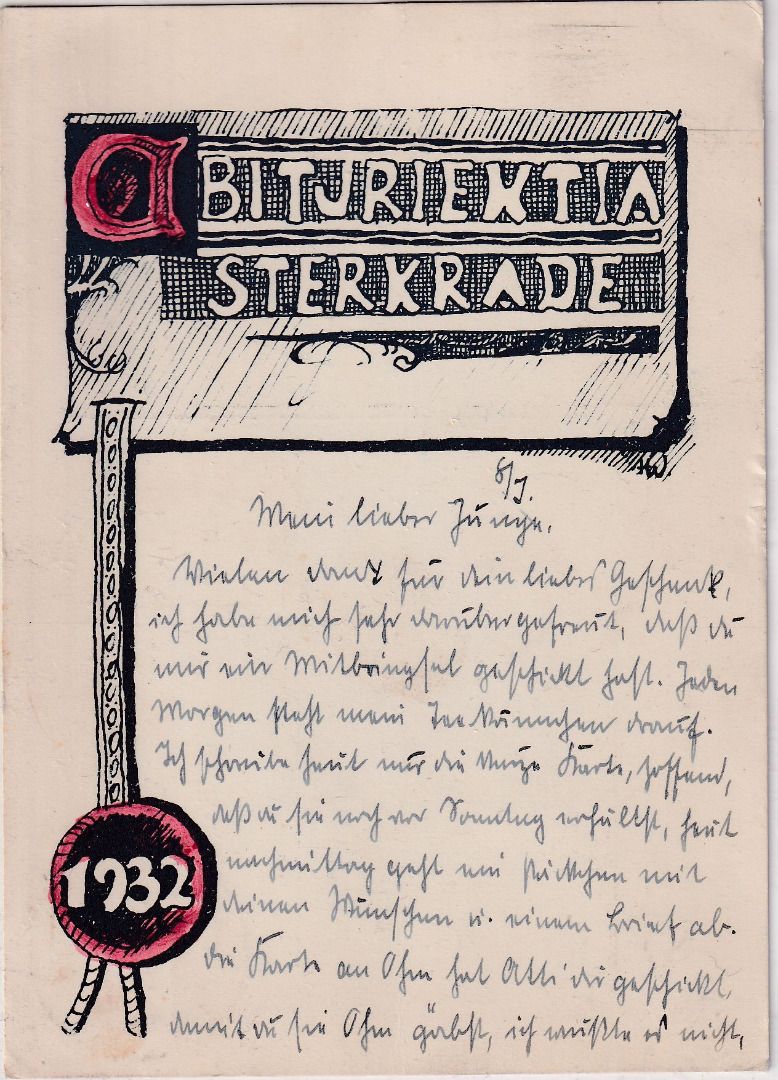 ABITURIENTIA
STERKRADE
8/I.
Mein lieber Junge.
Vielen Dank für dein liebes Geschenk,
ich habe mich sehr darüber gefreut, daß du
mir ein Mitbringsel geschickt hast. Jeden
Morgen steht mein Teekännchen drauf.
Ich schreibe heut nur die kurze Karte, hoffend,
daß du sie noch vor Sonntag erhältst, heut
nachmittag geht ein Päckchen mit
deinen Wünschen u. einem Brief ab.
die Karte an Ohm hat Atti dir geschickt,
damit du sie Ohm gäbst, ich wußte es nicht,
1932